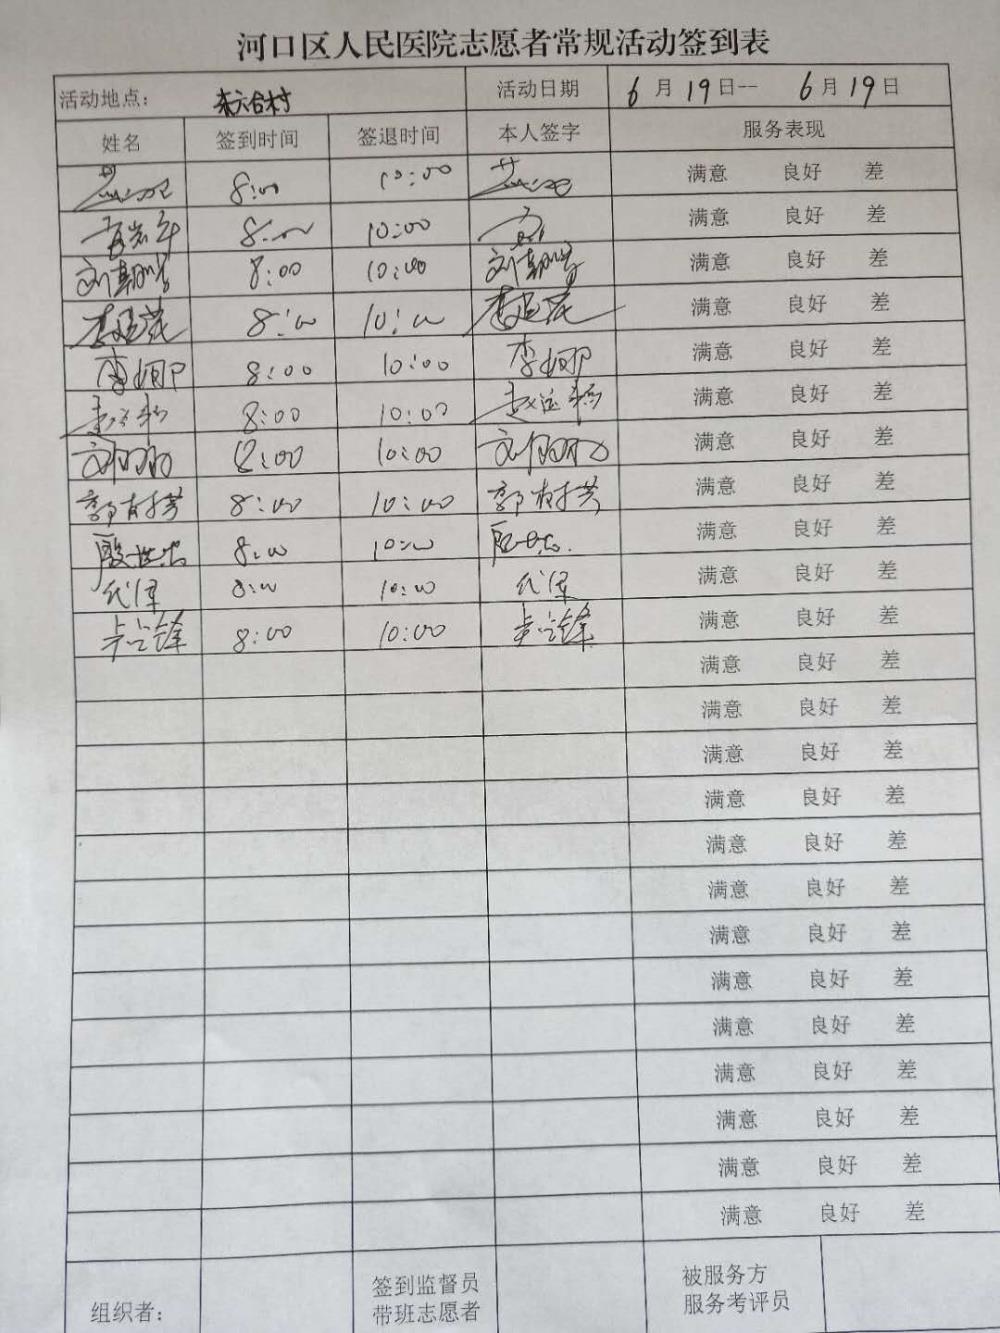 河口区人民医院志愿者常规活动签到表
活动地点： 东六合村 活动日期 6月19日--6月19日
姓名 签到时间 签退时间 本人签字 服务表现
8:00 10:00 满意 良好 差
8:00 10:00 满意 良好 差
8:00 10:00 满意 良好 差
8:00 10:00 满意 良好 差
李娜 8:00 10:00 李娜 满意 良好 差
8:00 10:00 满意 良好 差
8:00 10:00 满意 良好 差
郭树芳 8:00 10:00 郭树芳 满意 良好 差
殷世杰 8:00 10:00 殷世杰 满意 良好 差
8:00 10:00 满意 良好 差
8:00 10:00 满意 良好 差
满意 良好 差
满意 良好 差
满意 良好 差
满意 良好 差
满意 良好 差
满意 良好 差
满意 良好 差
满意 良好 差
满意 良好 差
满意 良好 差
满意 良好 差
满意 良好 差
满意 良好 差
组织者： 签到监督员 被服务方
带班志愿者 服务考评员